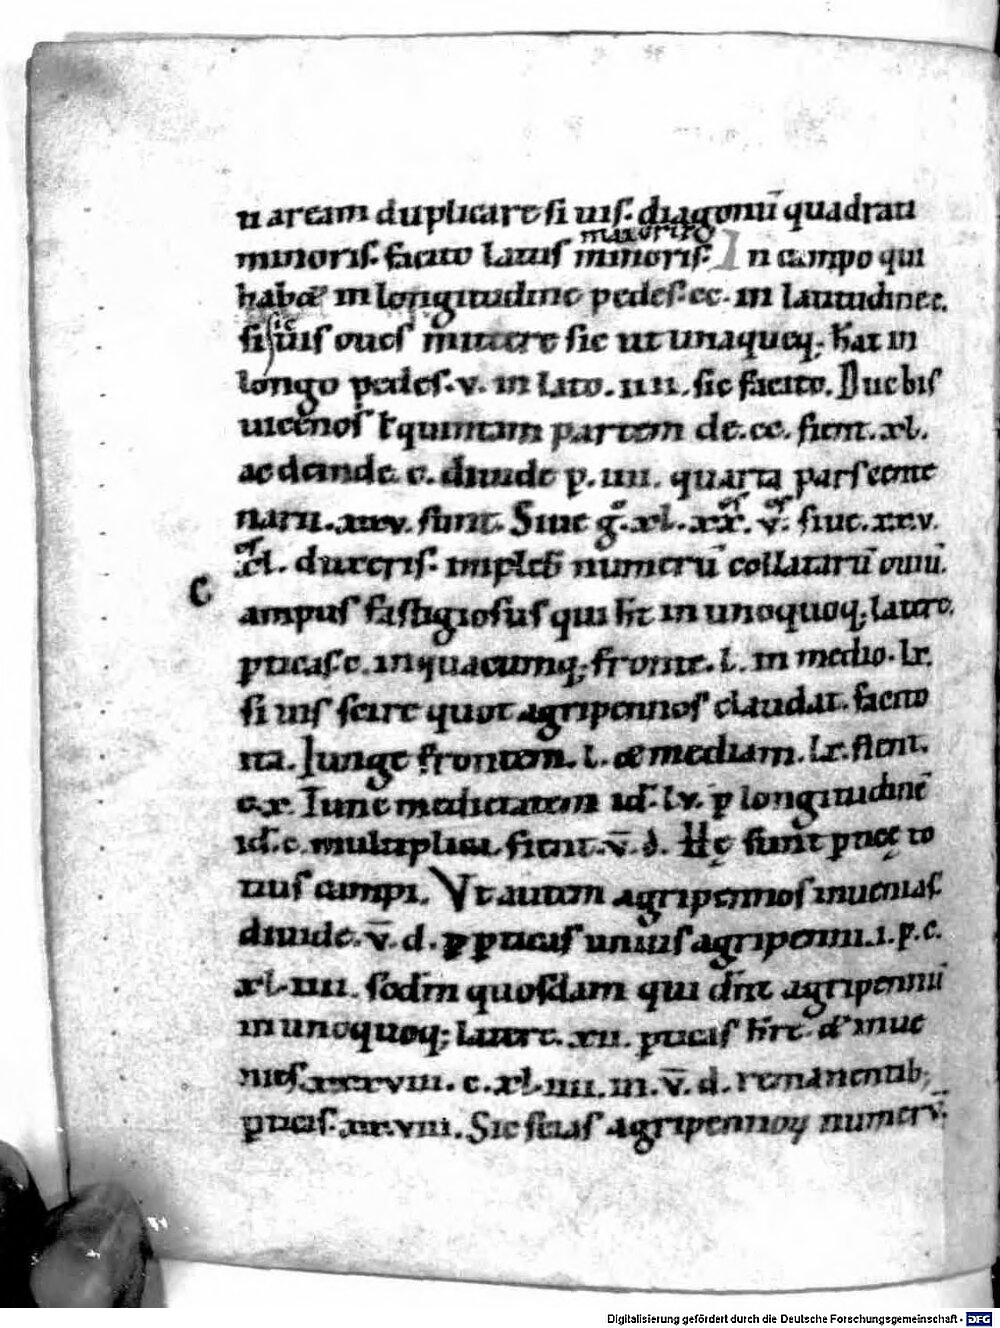 u aream duplicare si uis. diagonū quadrati
maioris
minoris. facito latus minoris. In campo qui
habet in longitudine pedes. cc. in latitudine c.
sic
si uis oues mittere sic ut unaqueq; hat in
longo pedes. v. in lato. iiii. sic facito. Duc bis
uicenos ł quintam partem de. cc. fient. xl.
ac deinde. c. diuide p. iiii. quarta pars cente
narii. xxv. sunt. Siue g̊. xl. xx. v. siue. xxv.
xl. duxeris. impleb numerū collatarū ouiū.
C
ampus fastigiosus qui ht in unoquoq; latere.
pticas c. in quacumq; fronte. l. in medio. lx.
si uis scire quot agripennos claudat. facito
ita. Junge frontem. l. et mediam. lx. fient.
c.x. Tunc medietatem id. lv. p longitudinē
id. c. multiplica. fient. v̄. d. Hę sunt pticę to
tius campi. Vt autem agripennos inuenias.
diuide. v̄. d. p pticas unius agripenni. i. p. c.
xl. iiii. sodm quosdam qui dnt agripennū
in unoquoq; latere. xii. pticas hre. et inue
nies. xxxviii. c. xl. iiii. in. v̄. d. remanentib;
pticis. xxviii. Sic scias agripennoꝝ numerū.
Digitalisierung gefördert durch die Deutsche Forschungsgemeinschaft - DFG